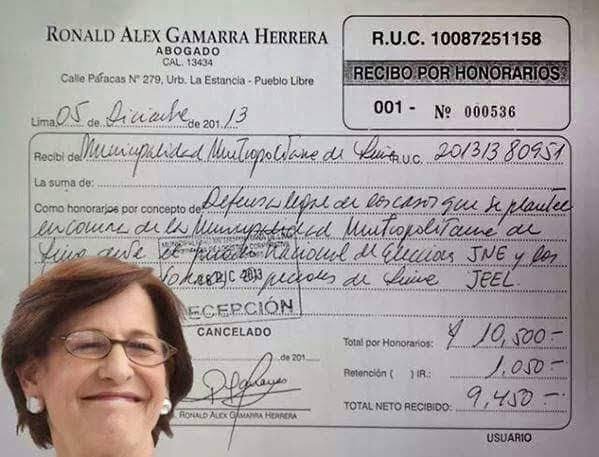 RONALD ALEX GAMARRA HERRERA
ABOGADO
CAL. 13434
Calle Paracas N° 279, Urb. La Estancia - Pueblo Libre
R.U.C. 10087251158
RECIBO POR HONORARIOS
001 - Nº 000536
Lima, 05 de Diciembre de 201 13
Recibí de Municipalidad Metropolitana de Lima R.U.C. 20131380951
La suma de:
Como honorarios por concepto de Defensa legal de los casos que se planteen
en contra de la Municipalidad Metropolitana de
Lima ante el Jurado Nacional de Elecciones JNE y los
Especiales de Lima JEEL.
DIC 2013
RECEPCIÓN
CANCELADO
de 201
RONALD ALEX GAMARRA HERRERA
Total por Honorarios: 10,500.-
Retención ( ) IR.: 1,050.-
TOTAL NETO RECIBIDO: 9,450.-
USUARIO